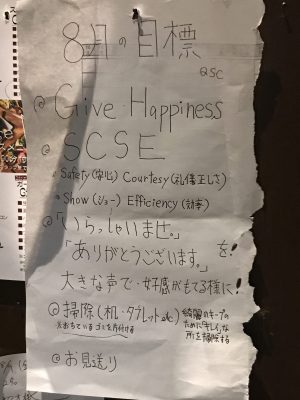 8月の目標
QSC
◎ Give Happiness
◎ SCSE
・Safety(安心) Courtesy(礼儀正しさ)
・Show(ショー) Efficiency(効率)
◎「いらっしゃいませ。」
「ありがとうございます。」を!
大きな声で・好感がもてる様に!
◎掃除(机・タブレットetc)
※おちているゴミを片付ける
綺麗のキープの
ために「キレイ」な
所を掃除する
◎お見送り